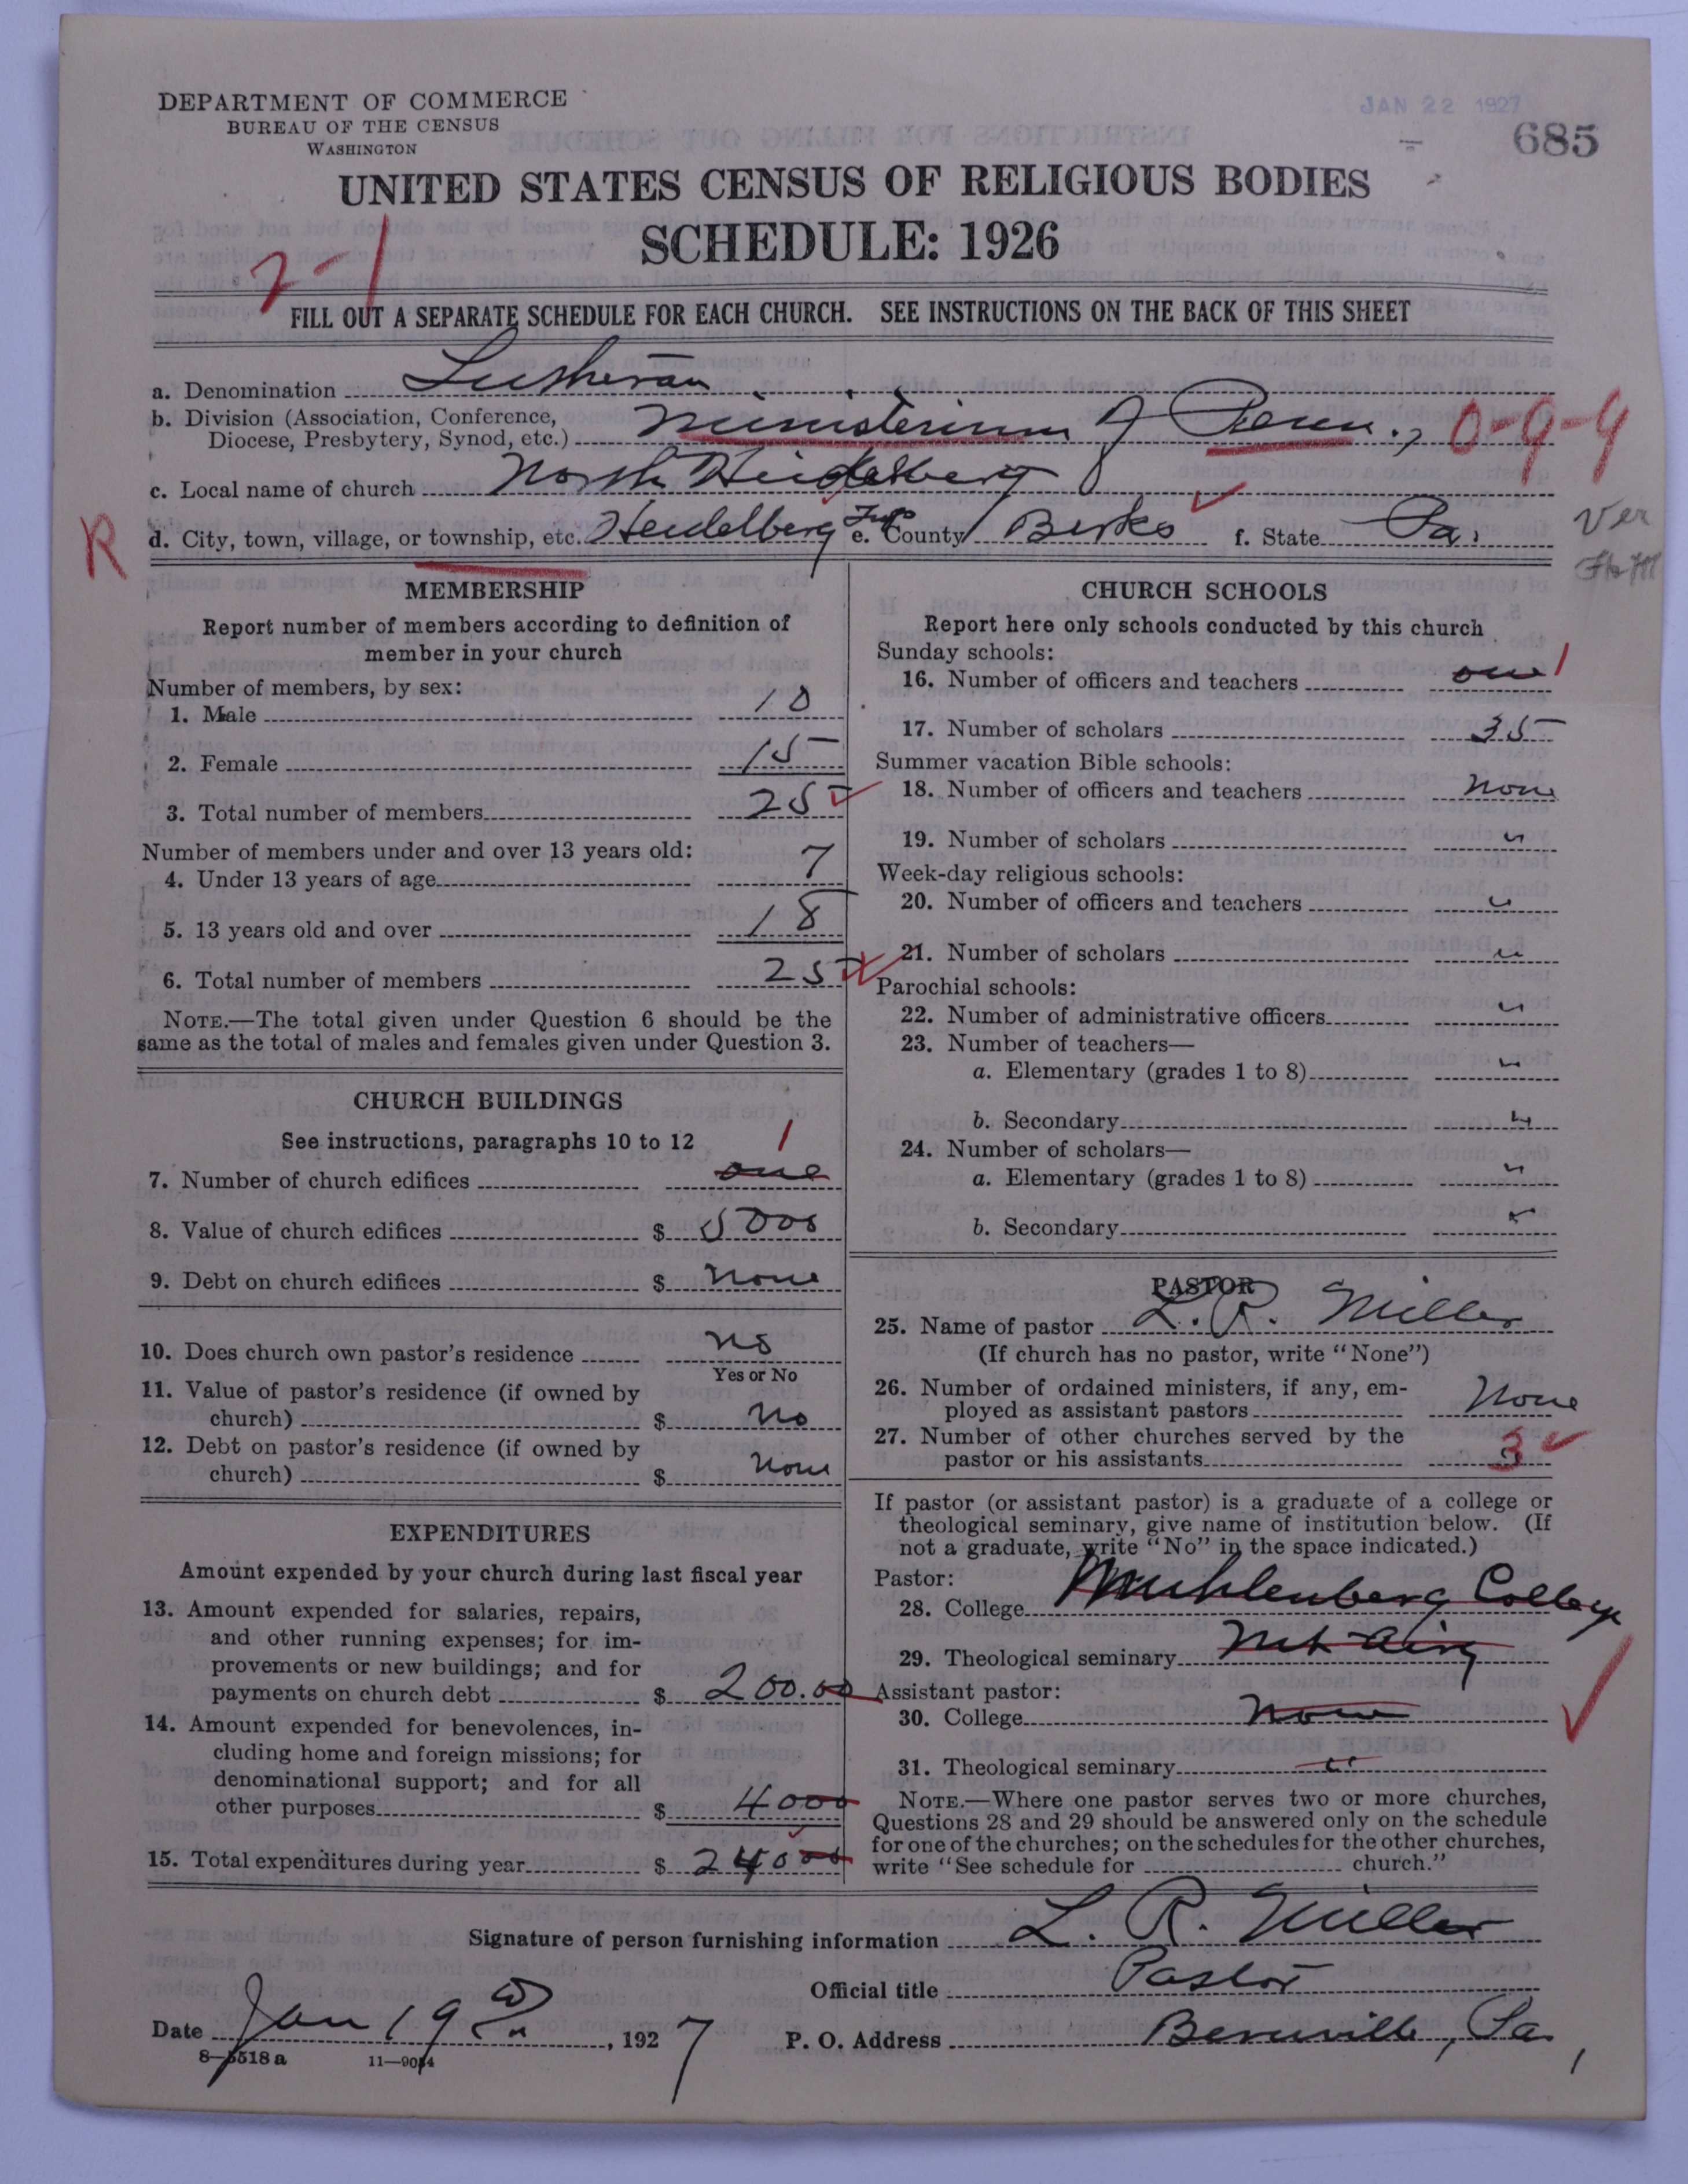 DEPARTMENT OF COMMERCE
BUREAU OF THE CENSUS
WASHINGTON
JAN 22 1927
685
UNITED STATES CENSUS OF RELIGIOUS BODIES
SCHEDULE: 1926
2-1
FILL OUT A SEPARATE SCHEDULE FOR EACH CHURCH. SEE INSTRUCTIONS ON THE BACK OF THIS SHEET
a. Denomination Lutheran
b. Division (Association, Conference,
Diocese, Presbytery, Synod, etc.) Ministerium of Penn., 0-9-9
c. Local name of church North Heidelberg
R d. City, town, village, or township, etc. Heidelberg Twp e. County Berks f. State Pa.
Ver
MEMBERSHIP
Report number of members according to definition of
member in your church
Number of members, by sex:
1. Male 10
2. Female 15
3. Total number of members 25
Number of members under and over 13 years old:
4. Under 13 years of age 7
5. 13 years old and over 18
6. Total number of members 25
NOTE.—The total given under Question 6 should be the
same as the total of males and females given under Question 3.
CHURCH BUILDINGS
See instructions, paragraphs 10 to 12 1
7. Number of church edifices one
8. Value of church edifices $ 5000
9. Debt on church edifices $ none
10. Does church own pastor's residence no
Yes or No
11. Value of pastor's residence (if owned by
church) $ No
12. Debt on pastor's residence (if owned by
church) $ none
EXPENDITURES
Amount expended by your church during last fiscal year
13. Amount expended for salaries, repairs,
and other running expenses; for im-
provements or new buildings; and for
payments on church debt $ 200.00
14. Amount expended for benevolences, in-
cluding home and foreign missions; for
denominational support; and for all
other purposes $ 4000
15. Total expenditures during year $ 24000
CHURCH SCHOOLS
Report here only schools conducted by this church
Sunday schools:
16. Number of officers and teachers one 1
17. Number of scholars 35
Summer vacation Bible schools:
18. Number of officers and teachers None
19. Number of scholars "
Week-day religious schools:
20. Number of officers and teachers "
21. Number of scholars "
Parochial schools:
22. Number of administrative officers "
23. Number of teachers—
a. Elementary (grades 1 to 8) "
b. Secondary "
24. Number of scholars—
a. Elementary (grades 1 to 8) "
b. Secondary "
PASTOR
25. Name of pastor L. R. Miller
(If church has no pastor, write "None")
26. Number of ordained ministers, if any, em-
ployed as assistant pastors None
27. Number of other churches served by the
pastor or his assistants 3
If pastor (or assistant pastor) is a graduate of a college or
theological seminary, give name of institution below. (If
not a graduate, write "No" in the space indicated.)
Pastor:
28. College Muhlenberg College
29. Theological seminary Mt Airy
Assistant pastor:
30. College None
31. Theological seminary "
NOTE.—Where one pastor serves two or more churches,
Questions 28 and 29 should be answered only on the schedule
for one of the churches; on the schedules for the other churches,
write "See schedule for church."
Signature of person furnishing information L. R. Miller
Official title Pastor
Date Jan 19, 1927 P. O. Address Bernville, Pa.
8—5518 a 11—9034